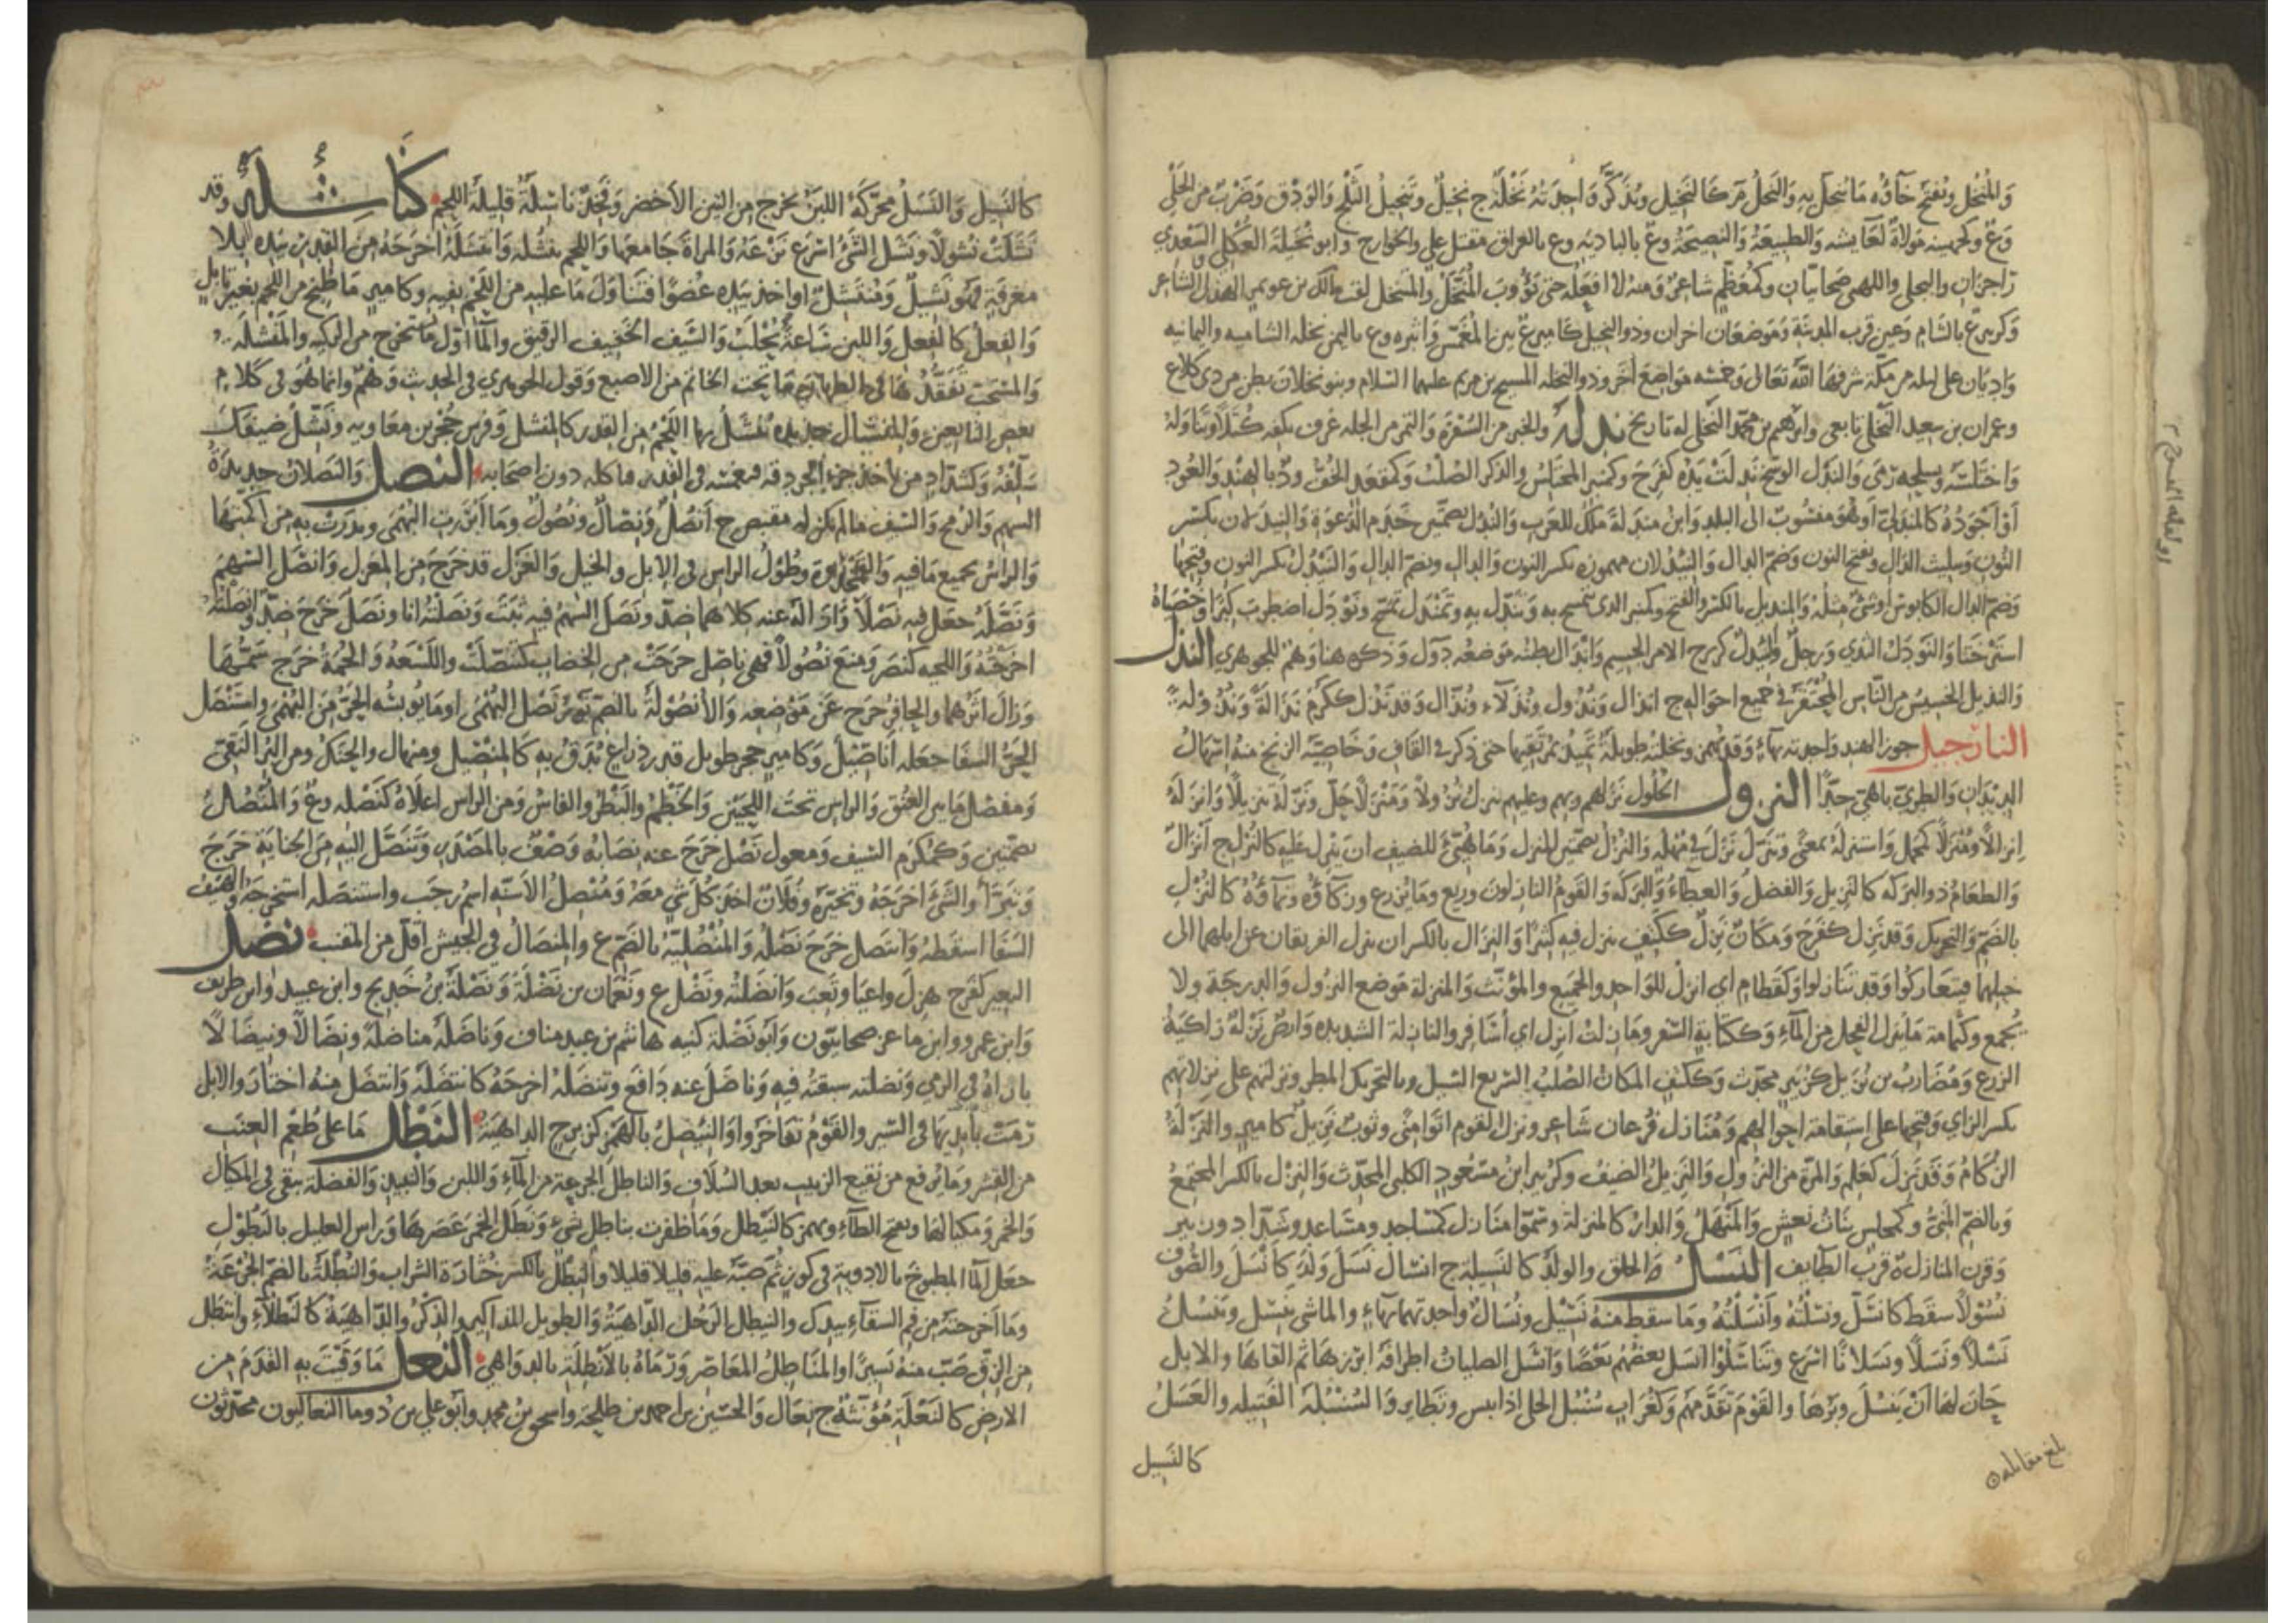 والمنخل وتفتح خاؤه ما ينخل به والنخل م كالنخيل ويذكر واحدته نخلة ج نخيل وتنخيل الثلج والودق وضرب من الحلي
وع وكجهينة مولاة لعائشة والطبيعة والنصيحة وع بالبادية وع بالعراق مقتل علي والخوارج وابو نخيلة العكلي السعدي
راجزان والبجلي واللهبي صحابيان وكمعظم شاعر ومنه لا افعله حتى يؤوب المنخل والمتنخل لقب مالك بن عويمر الهذلي الشاعر
وكزبير ع بالشام وعين قرب المدينة وموضعان اخران وذو النخيل كامير ع بين المغمس واثبرة وع باليمن نخلة الشامية واليمانية
واديان على ليلة من مكة شرفها الله تعالى وخمسة مواضع اخر وذو النخلة المسيح بن مريم عليهما السلام وبنو نخلان بطن من ذي كلاع
وعمران بن سعيد النخلي تابعي وابرهيم بن محمد النخلي له تاريخ ندله والخبز من السفرة والتمر من الجلة غرف بكفه كتلا وتناوله
واختلسه وبسلحه رمى والندل الوسخ ندلت يده كفرح وكمنبر المختلس والذكر الصلب وكمقعد الخف ود بالهند والعود
او اجوده كالمندلي او هو منسوب الى البلد وابن مندلة ملك للعرب والندل بضمتين خدم الدعوة والنيدلان بكسر
النون وبتثليث الدال وبفتح النون وضم الدال والنيدلان مهموزة بكسر النون والدال وبضم الدال والنيدل بكسر النون وفتحها
وضم الدال الكابوس او شيء مثله والمنديل بالكسر والفتح وكمنبر الذي يتمسح به وتندل به وتمندل تمسح ونودل اضطرب كبرا وخصياه
استرختا والنودل الثدي ورجل والنئدل كزبرج الامر الجسيم واندال بطنه موضعه دول وذكره هنا وهم للجوهري النذل
والنذيل الخسيس من الناس المحتقر في جميع احواله ج انذال ونذول ونذلاء ونذال وقد نذل ككرم نذالة ونذولة
النارجيل جوز الهند واحدته بهاء وقد يهمز ونخلته طويلة تميد بمرتقيها حتى ذكر في القاف وخاصية الزنخ منه اسهال
الديدان والطري باهي جدا النزول الحلول نزلهم وبهم وعليهم ينزل نزولا ومنزلا حل ونزله تنزيلا وانزله
انزالا ومنزلا كمجمل واستنزله بمعنى وتنزل نزل في مهلة والنزل بضمتين المنزل وما هيئ للضيف ان ينزل عليه كالنزل ج انزال
والطعام ذو البركة كالنزيل والفضل والعطاء والبركة والقوم النازلون وريع وما يزرع وزكاؤه ونماؤه كالنزل
بالضم والتحريك وقد نزل كفرح ومكان نزل ككتف ينزل فيه كثيرا والنزال بالكسر ان ينزل الفريقان عن ابلهما الى
خيلهما فيتعاركوا وقد تنازلوا وكقطام اي انزل للواحد والجميع والمؤنث والمنزلة موضع النزول والدرجة ولا
يجمع وكثمامة ما ينزل الفحل من الماء وككتابة السفر وما زلت انزل اي أسافر والنازلة الشديدة وارض نزلة زاكية
الزرع ومضارب بن نزيل كزبير محدث وككتف المكان الصلب السريع السيل وبالتحريك المطر وتركتهم على نزلاتهم
بكسر الزاي وفتحها على استقامة احوالهم ومنازل فرعان شاعر ونزل القوم اتوا منى وثوب نزيل كامير والنزلة
الزكام وقد نزل كعلم والمرة من النزول والنزيل الضيف وكزبير ابن مسعود الكلبي المحدث والنزل بالكسر المجتمع
وبالضم المني وكمجلس بنات نعش والمنهل والدار كالمنزلة وسموا منازل كمساجد ومساعد وشدادا وزبير
وقرن المنازل ة قرب الطايف النسل الخلق والولد كالنسيلة ج انسال نسل ولد كانسل والصوف
نسولا سقط كانسل ونسلته وانسلته وما سقط منه نسيل ونسال واحدتهما بهاء والماشي ينسل وينسل
نسلا ونسلا ونسلانا اسرع وتناسلوا انسل بعضهم بعضا وانسل الصليان اطرافه ابرزها ثم القاها والابل
حان لها ان ينسل وبرها والقوم تقدمهم وكغراب سنبل الحلي اذا يبس وتطاير والنسيلة الفتيلة والعسل
كالنسيل
بلغ مقابلة
كالنسيل والنسل محركة اللبن يخرج من التين الاخضر وفخذ ناشلة قليلة اللحم كناشلة وقد
نشلت نشولا ونشل الشئ اسرع نزعه والمراة جامعها واللحم ينشله وانتشله اخرجه من القدر بيده بلا
مغرفة فهو نشيل ومنتشل او اخذ بيده عضوا فتناول ما عليه من اللحم بفيه وكامير ما طبخ من اللحم بغير تابل
والفعل كالفعل واللبن ساعة يحلب والسيف الخفيف الرقيق والماء اول ما يستخرج من الركية والمنشلة
والمستحب تفقدها في الطهارة ما تحت الخاتم من الاصبع وقول الجوهري في الحديث وهم وانما هو في كلام
بعض التابعين والمنشال حديدة ينشل بها اللحم من القدر كالمنشل وفرس حجر بن معاوية ونشل ضيفك
سلفه وكشداد من ياخذ حرف الجردقة فيغمسه في القدر فياكله دون اصحابه النصل والنصلان حديدة
السهم والرمح والسيف ما لم يكن له مقبض ج انصل ونصال ونصول وما ابرزت البهمى وبدرت به من اكمتها
والراس بجميع ما فيه والقمحدوة وطول الراس في الابل والخيل والغزل قد خرج من المغزل وانصل السهم
ونصله جعل فيه نصلا وازاله عنه كلاهما ضد ونصل السهم فيه ثبت ونصلته انا ونصل خرج ضد وانصلته
اخرجته واللحية كنصر ومنع نصولا فهي ناصل خرجت من الخضاب كتنصلت واللسعة والحمة خرج سمها
وزال اثرهما والحافر خرج عن موضعه والانصولة بالضم نور نصل البهمى او ما يوبسه الحر من البهمى واستنصل
الحر السفا جعله اناصيل وكامير حجر طويل قدر ذراع يدق به كالمنصيل ومنهال والحنك ومن البر النقي
ومفصل ما بين العنق والراس تحت اللحيين والخطم والبظر والفاس ومن الراس اعلاه كنصله وع والمنصل
بضمتين وكمكرم السيف ومعول نصل خرج عنه نصابه وصف بالمصدر وتنصل اليه من الجناية خرج
وتبرأ والشئ اخرجه وتخيره وفلانا اخذ كل شي معه ومنصل الاسنة اسم رجب واستنصله استخرجه والهيف
السفا اسقطه وانتصل خرج نصله والمنصلية بالضم ع والمنصال في الجيش اقل من المقنب نضل
البعير كفرح هزل واعيا وتعب وانضلته ونضل ع ونعمان بن نضلة ونضلة بن خديج وابن عبيد وابن طريف
وابن عمرو وابن ماعز صحابيون وابو نضلة كنية هاشم بن عبد مناف وناضله مناضلة ونضالا ونيضالا
باراه في الرمي ونضلته سبقته فيه وناضل عنه دافع وتنضله اخرجه كانتضله وانتضل منه اختار والابل
رمت بايديها في السير والقوم تفاخروا والنئضل بالهمز كزبرج الداهية النطل ما على طعم العنب
من القشر وما يرفع من نقيع الزبيب بعد السلاف والناطل الجرعة من الماء واللبن والنبيذ والفضلة تبقى في المكيال
والخمر ومكيالها وبفتح الطاء ويهمز كالنيطل وما ظفرت بناطل شيء ونطل الخمر عصرها وراس العليل بالنطول
جعل الماء المطبوخ بالادوية في كوز ثم صبه عليه قليلا قليلا والنطل بالكسر خثارة الشراب والنطلة بالضم الجرعة
وما اخرجته من فم السقاء بيدك والنيطل الرجل الداهية والطويل المذاكير والذكر والداهية كالنطلاء وانتطل
من الزق صب منه يسيرا والمناطل المعاصر ورماه بالانطلة بالدواهي النعل ما وقيت به القدم من
الارض كالنعلة مؤنثة ج نعال والحسين بن احمد بن طلحة واسحق بن محمد وابو علي بن دوما النعاليون محدثون